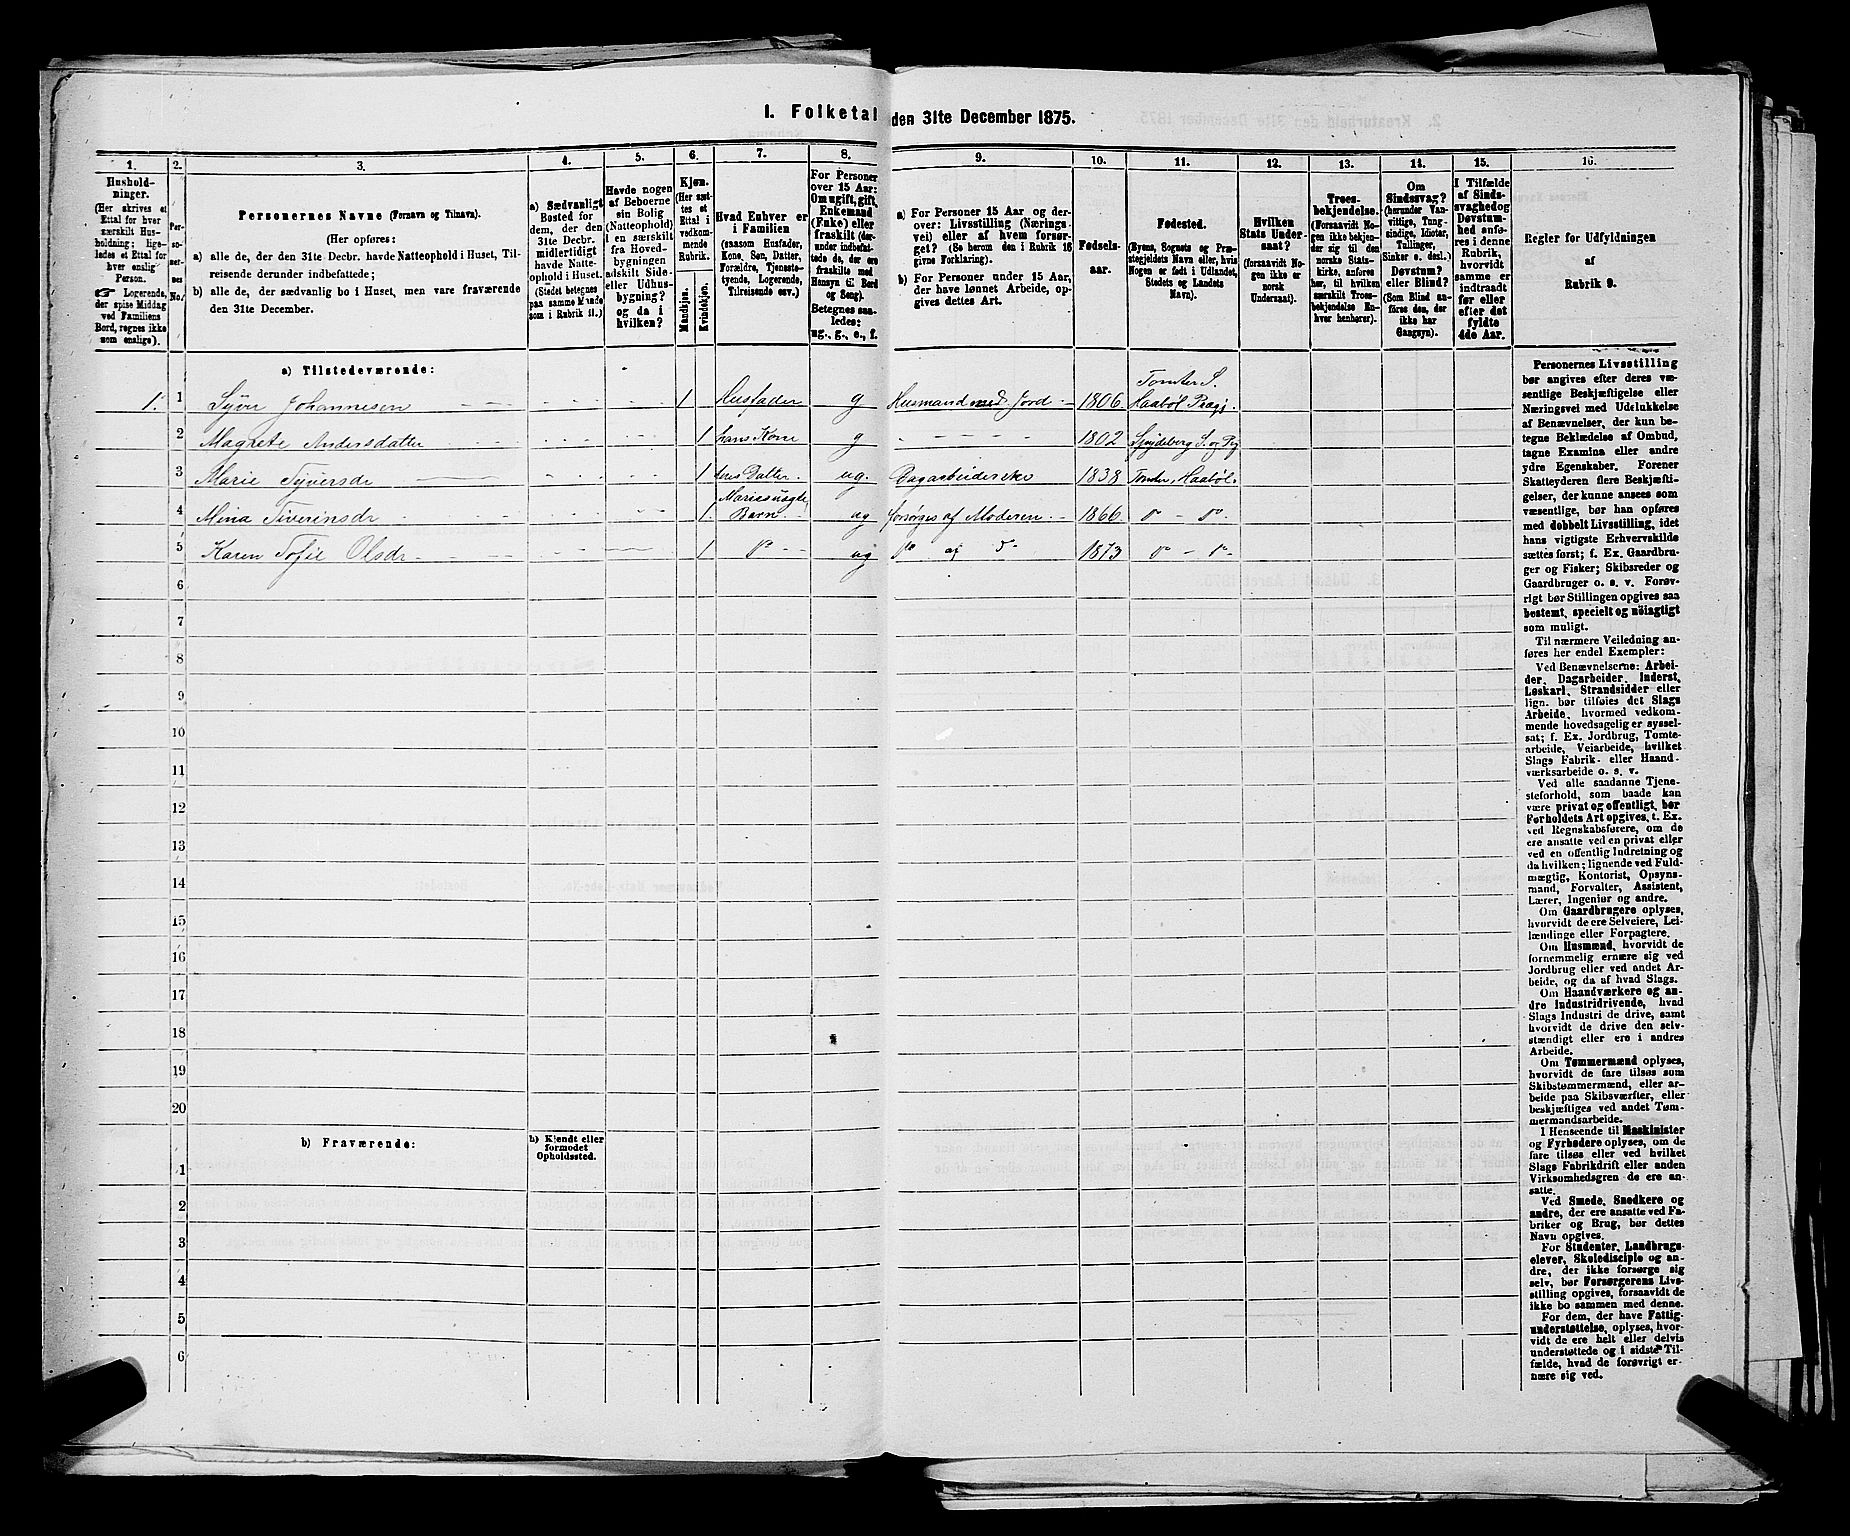 I. Folketal den 31te December 1875.
1.
2.
3.
4.
5.
6.
7.
8.
9.
10.
11.
12.
13.
14.
15.
16.
Hushold-
ninger.
(Her skrives et
Ettal for hver
særskilt Hus-
holdning; lige-
ledes et Ettal for
hver enslig
Person.
☞ Logerende,
der spise Middag
ved Familiens
Bord, regnes ikke
som enslige).
Per-
so-
ner-
nes
No.
Personernes Navne (Fornavn og Tilnavn).
(Her opføres:
a) alle de, der den 31te Decbr. havde Natteophold i Huset, Til-
reisende derunder indbefattede;
b) alle de, der sædvanlig bo i Huset, men vare fraværende
den 31te December.
a) Sædvanligt
Bosted for
dem, der den
31te Decbr.
midlertidigt
havde Natte-
ophold i Huset.
(Stedet betegnes
paa samme Maade
som i Rubrik 11.)
Havde nogen
af Beboerne
sin Bolig
(Natteophold)
i en særskilt
fra Hoved-
bygningen
adskilt Side-
eller Udhus-
bygning?
og da i
hvilken?
Kjøn.
(Her sæt-
tes et
Ettal i
vedkom-
mende
Rubrik.
Mandkjøn.
Kvindekjøn.
Hvad Enhver er
i Familien
(saasom Husfader,
Kone, Søn, Datter,
Forældre, Tjeneste-
tyende, Logerende,
Tilreisende osv.)
For Personer
over 15 Aar:
Om ugift, gift,
Enkemand
(Enke) eller
fraskilt (der-
under indbefat-
tede de, der ere
fraskilte med
Hensyn til Bord
og Seng).
Betegnes saa-
ledes:
ug., g., e., f.
a) For Personer 15 Aar og der-
over: Livsstilling (Nærings-
vei) eller af hvem forsør-
get? (Se herom den i Rubrik 16
givne Forklaring).
b) For Personer under 15 Aar,
der have lønnet Arbeide, op-
gives dettes Art.
Fødsels-
aar.
Fødested.
(Byens, Sognets og Præ-
stegjeldets Navn eller, hvis
Nogen er født i Udlandet,
Stedets og Landets
Navn).
Hvilken
Stats Under-
saat?
(forsaavidt No-
gen ikke er
norsk
Undersaat).
Troes-
bekjendelse.
(Forsaavidt No-
gen ikke bekjen-
der sig til den
norske Stats-
kirke, anføres
her, til hvilken
særskilt Troes-
bekjendelse En-
hver henhører).
Om
Sindssvag?
(herunder Van-
vittige, Tung-
sindige, Idioter,
Tullinger,
Sinker o. desl.)
Døvstum?
eller Blind?
(Som Blind an-
føres den, der
ikke har
Gangsyn).
I Tilfælde
af Sinds-
svaghed og
Døvstum-
hed anfø-
res i denne
Rubrik,
hvorvidt
samme er
indtraadt
før eller
efter det
fyldte
4de Aar.
Regler for Udfyldningen
af
Rubrik 9.
a) Tilstedeværende:
1. 1 Syver Johannesen 1 Husfader g Husmand med Jord 1806 Tomter S. Haabøl Præg.
2 Magrete Andersdatter 1 hans Kone g 1802 Spydeberg S. og Pg
3 Marie Syversdr 1 deres Datter ug. Dagarbeiderske 1838 Tomter, Haabøl
4 Mina Siverinsdr 1 Maries uægte Barn ug forsørges af Moderen 1866 do - do
5 Karen Sofie Olsdr 1 do ug do af do 1873 do - do
6
7
8
9
10
11
12
13
14
15
16
17
18
19
20
b) Fraværende:
b) Kjendt eller
formodet
Opholdssted.
1
2
3
4
5
6
Personernes Livsstilling
bør angives efter deres væ-
sentlige Beskjæftigelse eller
Næringsvei med Udelukkelse
af Benævnelser, der kun be-
tegne Beklædelse af Ombud,
tagne Examina eller andre
ydre Egenskaber. Forener
Skatteyderen flere Beskjæfti-
gelser, der kunne ansees som
væsentlige, bør han opføres
med dobbelt Livsstilling, idet
hans vigtigste Erhvervskilde
sættes først; f. Ex. Gaardbru-
ger og Fisker; Skibsreder og
Gaardbruger o. s. v. Forøv-
rigt bør Stillingen opgives saa
bestemt, specielt og nøiagtigt
som muligt.
Til nærmere Veiledning an-
føres her endel Exempler:
Ved Benævnelserne: Arbei-
der, Dagarbeider, Inderst,
Løskarl, Strandsidder eller
lign. bør tilføies det Slags
Arbeide, hvormed vedkom-
mende hovedsagelig er syssel-
sat; f. Ex. Jordbrug, Tomte-
arbeide, Veiarbeide, hvilket
Slags Fabrik- eller Haand-
værksarbeide o. s. v.
Ved alle saadanne Tjene-
steforhold, som baade kan
være privat og offentligt, bør
Forholdets Art opgives, t. Ex.
ved Regnskabsførere, om de
ere ansatte ved en privat eller
ved en offentlig Indretning og
da hvilken; lignende ved Fuld-
mægtig, Kontorist, Opsyns-
mand, Forvalter, Assistent,
Lærer, Ingeniør og andre.
Om Gaardbrugere oplyses,
hvorvidt de ere Selveiere, Lei-
lændinge eller Forpagtere.
Om Husmænd, hvorvidt de
fornemmelig ernære sig ved
Jordbrug eller ved andet Ar-
beide, og da af hvad Slags.
Om Haandværkere og an-
dre Industridrivende, hvad
Slags Industri de drive, samt
hvorvidt de drive den selv-
stændigt eller ere i andres
Arbeide.
Om Tømmermænd oplyses,
hvorvidt de fare tilsøs som
Skibstømmermænd, eller ar-
beide paa Skibsværfter, eller
beskjæftiges ved andet Tøm-
mermandsarbeide.
I Henseende til Maskinister
og Fyrbødere oplyses, om de
fare tilsøs eller ved hvilket
Slags Fabrikdrift eller anden
Virksomhedsgren de ere an-
satte.
Ved Smede, Snedkere og
andre, der ere ansatte ved Fa-
briker og Brug, bør dettes
Navn opgives.
For Studenter, Landbrugs-
elever, Skoledisciple og an-
dre, der ikke forsørge sig
selv, bør Forsørgerens Livs-
stilling opgives, forsaavidt de
ikke bo sammen med denne.
For dem, der have Fattig-
understøttelse, oplyses, hvor-
vidt de ere helt eller delvis
understøttede og i sidste Til-
fælde, hvad de forøvrigt er-
nære sig ved.